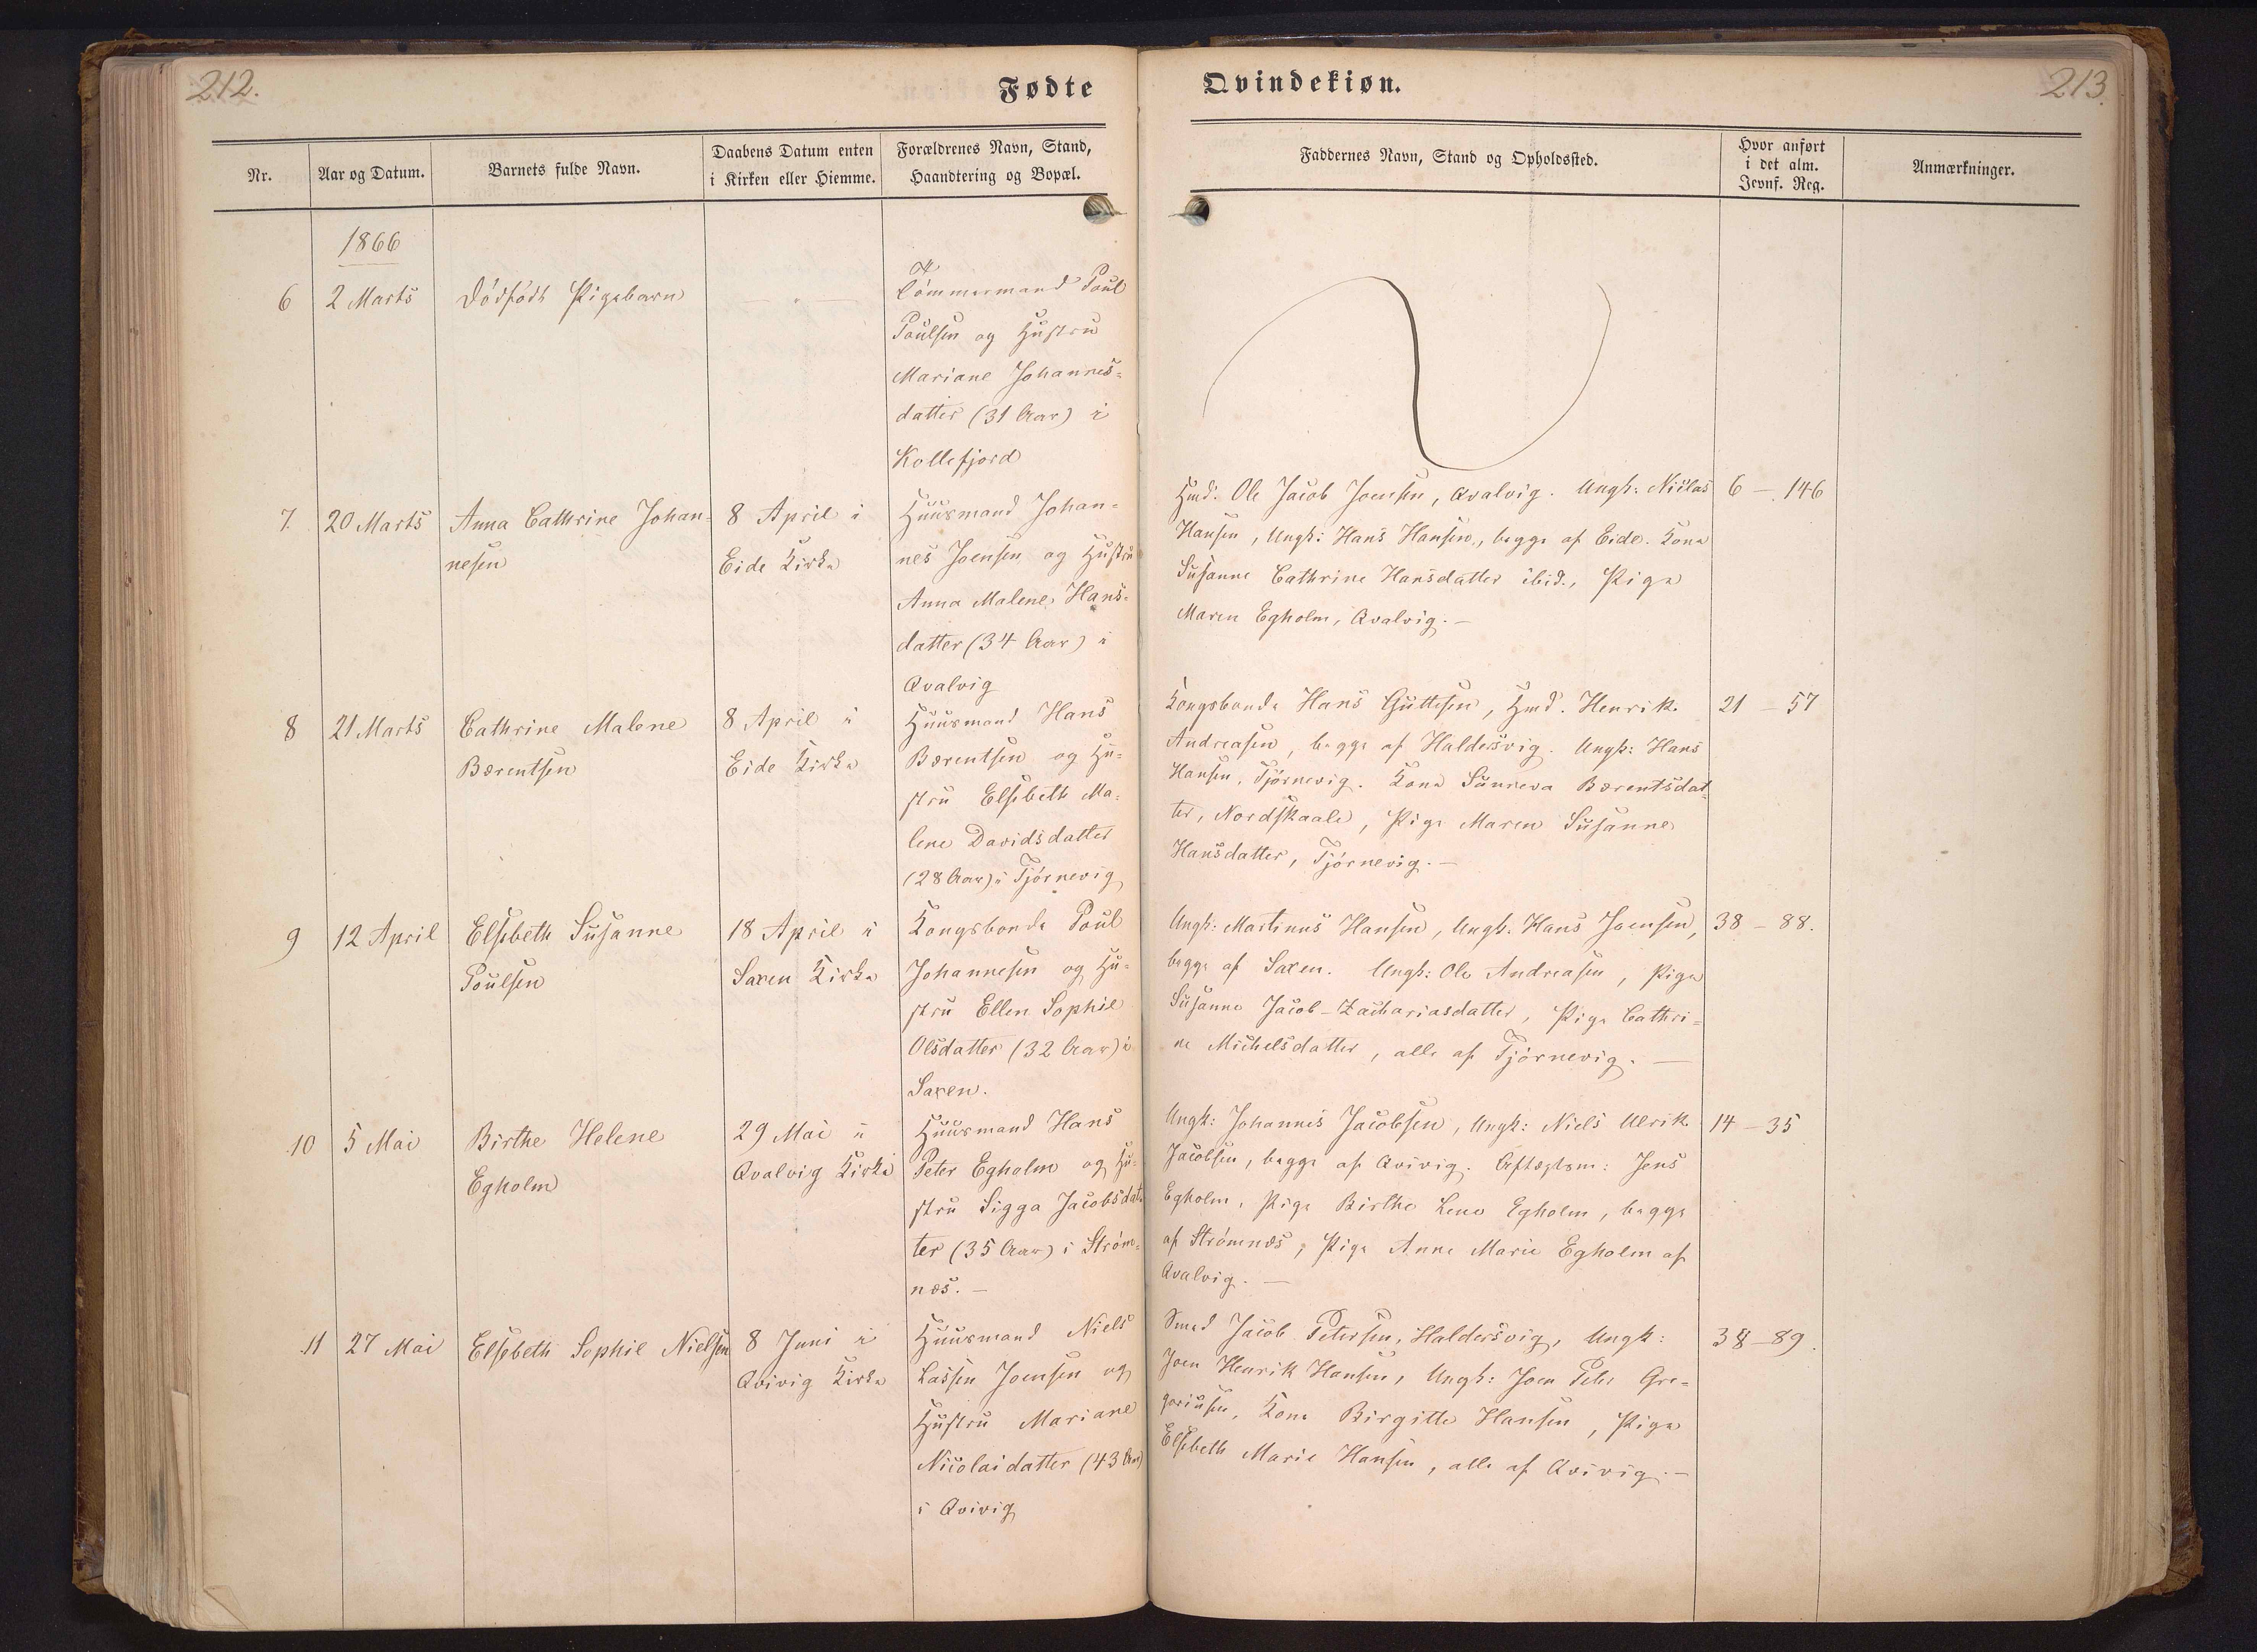 212.
Fødte
Nr.
Aar og Datum.
Barnets fulde Navn.
Daabens Datum enten
i Kirken eller Hiemme.
Forældrenes Navn, Stand,
Haandtering og Bopæl.
1866
6
2 Marts
Dödfödt Pigebarn
Tömmermand Poul
Poulsen og Hustru
Mariane Johannes-
datter (31 Aar) i
Kollefjord
7.
20 Marts
Anna Cathrine Johan-
nesen
8 April i
Eide Kirke
Huusmand Johan-
nes Joensen og Hustru
Anna Malene Hans-
datter (34 Aar) i
Qvalvig
8
21 Marts
Cathrine Malene
Bærentsen
8 April i
Eide Kirke
Huusmand Hans
Bærentsen og Hu-
stru Elsebeth Ma-
lene Davidsdatter
(28 Aar) i Tjörnevig
9
12 April
Elsebeth Susanne
Poulsen
18 April i
Saxen Kirke
Kongsbonde Poul
Johannesen og Hu-
stru Ellen Sophie
Olsdatter (32 Aar) i
Saxen.
10
5 Mai
Birthe Helene
Egholm
29 Mai i
Qvalvig Kirke
Huusmand Hans
Peter Egholm og Hu-
stru Sigga Jacobsdat-
ter (35 Aar) i Ström-
næs. —
11
27 Mai
Elsebeth Sophie Nielsen
8 Juni i
Qvivig Kirke
Huusmand Niels
Lassen Joensen og
Hustru Mariane
Nicolaidatter (43 Aar)
i Qvivig
Qvindekiøn.
213.
Faddernes Navn, Stand og Opholdssted.
Hvor anført
i det alm.
Jevnf. Reg.
Anmærkninger.
Hmd. Ole Jacob Joensen, Qvalvig. Ungk: Niclas
Hansen, Ungk: Hans Hansen, begge af Eide. Kone
Susanne Cathrine Hansdatter ibid., Pige
Maren Egholm, Qvalvig. —
6 — 146
Kongsbonde Hans Guttesen, Hmd. Henrik
Andreasen, begge af Haldersvig. Ungk: Hans
Hansen, Tjörnevig. Kone Sunneva Bærentsdat-
ter, Nordskaale, Pige Maren Susanne
Hansdatter, Tjörnevig. —
21 — 57
Ungk: Martinus Hansen, Ungk. Hans Joensen,
begge af Saxen. Ungk: Ole Andreasen, Pige
Susanne Jacob-Zachariasdatter, Pige Cathri-
ne Michelsdatter, alle af Tjörnevig. —
38 — 88.
Ungk: Johannes Jacobsen, Ungk: Niels Ulrik
Jacobsen, begge af Qvivig. Aftægtsm: Jens
Egholm, Pige Birthe Lene Egholm, begge
af Strömnæs, Pige Anne Marie Egholm af
Qvalvig. —
14 — 35
Smed Jacob Petersen, Haldersvig, Ungk:
Joen Henrik Hansen, Ungk: Joen Peter Gre-
goriusen, Kone Birgitte Hansen, Pige
Elsebeth Marie Hansen, alle af Qvivig. —
38 — 89.